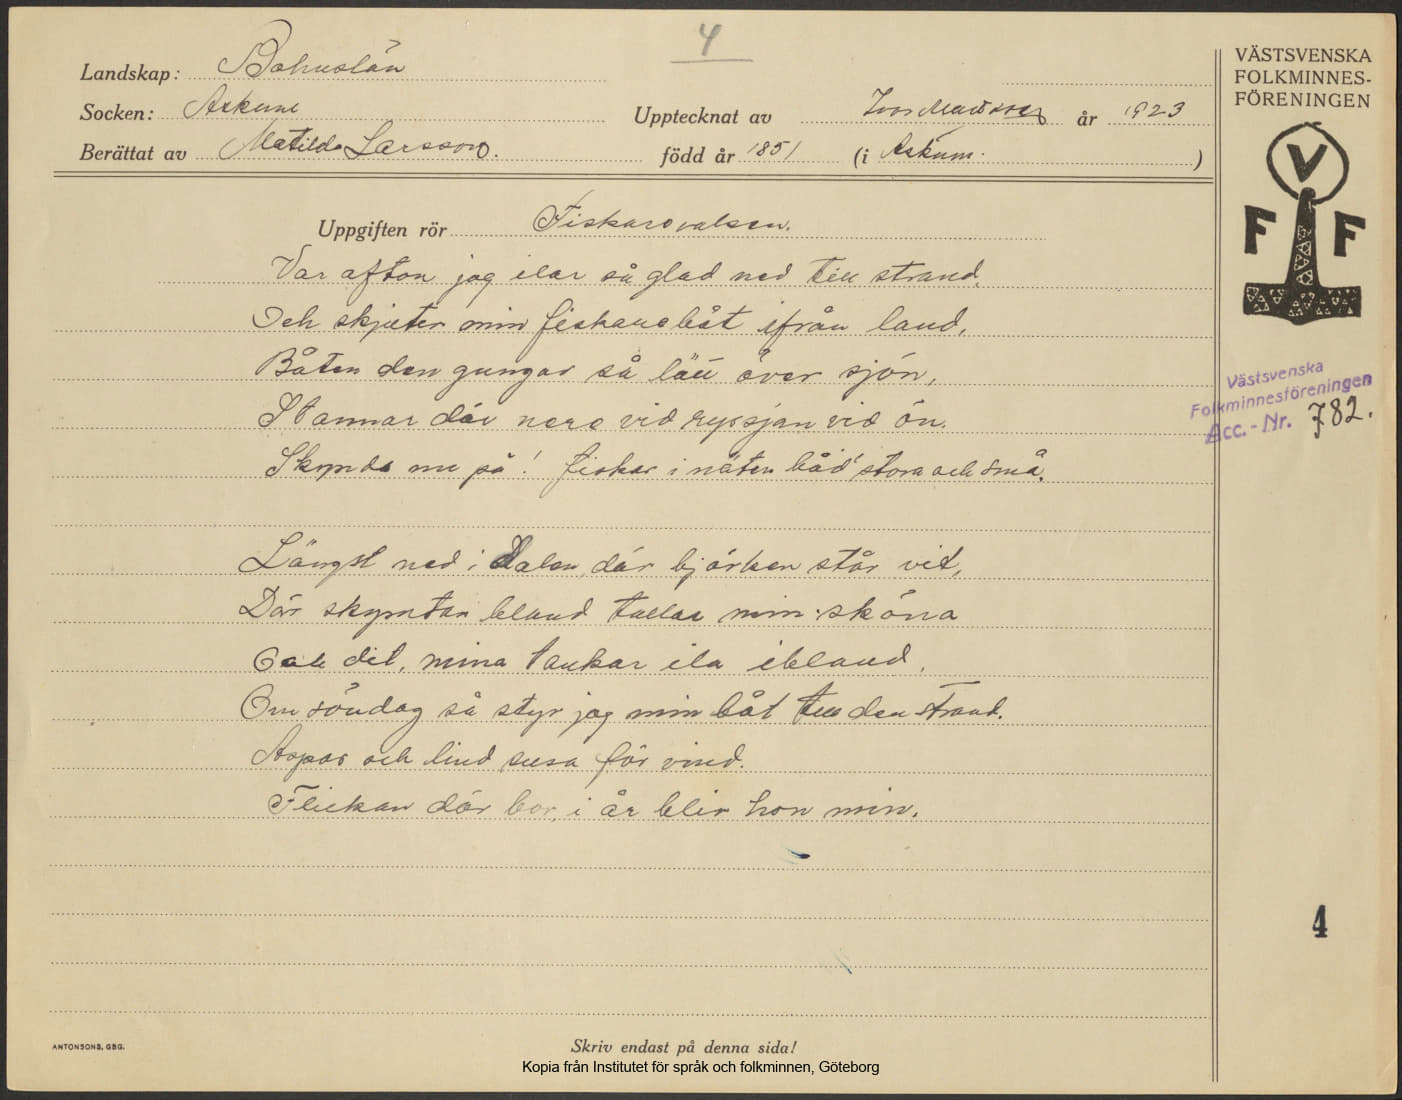 4
Landskap: Bohuslän
Socken: Askum
Upptecknat av Ivar år 1923
Berättat av Matilda Larsson. född år 1851 (i Askum.)
Uppgiften rör Fiskarevalsen.
Var afton jag ilar så glad ned till strand,
Och skjuter min fiskarebåt ifrån land,
Båten den gungar så lätt över sjön,
Stannar där nere vid ryssjan vid ön.
Skynda nu på! fiskar i näten båd' stora och små.
Längst ned i Dalen, där björken står vit,
Där skymtar bland tallar min sköna
Och dit, mina tankar ila ibland,
Om söndag så styr jag min båt till den strand.
Aspar och lind susa för vind.
Flickan där bor, i år blir hon min.
VÄSTSVENSKA
FOLKMINNES-
FÖRENINGEN
V
F F
Västsvenska
Folkminnesföreningen
Acc.-Nr. 782.
4
ANTONSONS, GBG.
Skriv endast på denna sida!
Kopia från Institutet för språk och folkminnen, Göteborg